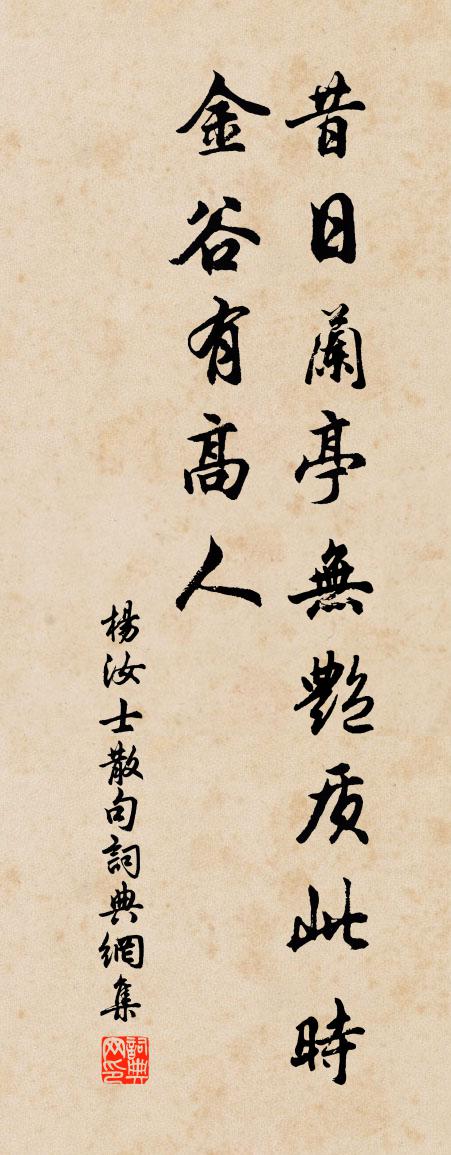 昔日蘭亭無艷质此時
金谷有高人
楊汝士散句詞典網集
詞典网印